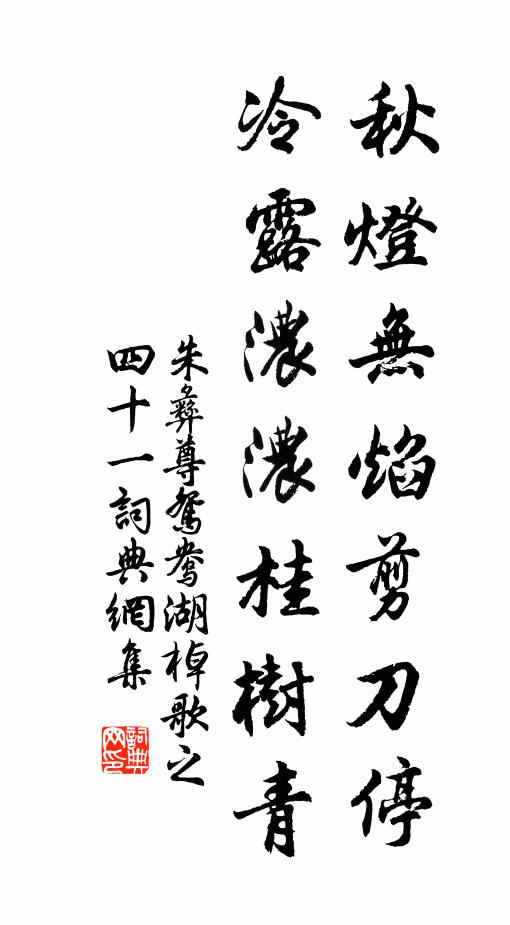 秋燈無焰剪刀停
冷露濃濃桂樹青
朱彝尊鴛鴦湖棹歌之
四十一詞典網集
詞典網印